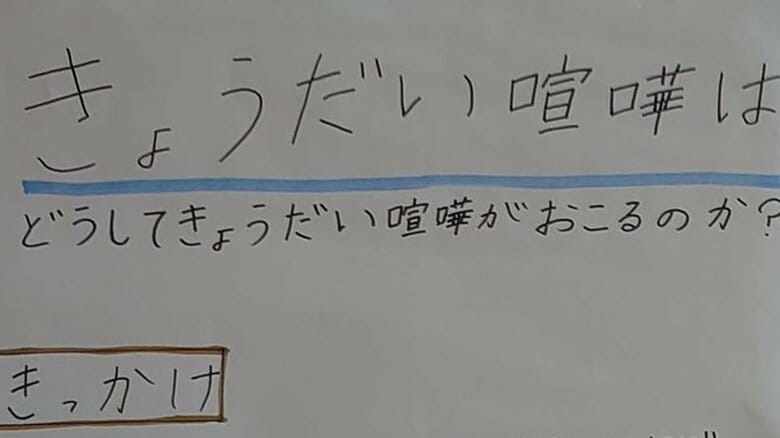 きょうだい喧嘩は
どうしてきょうだい喧嘩がおこるのか?
きっかけ